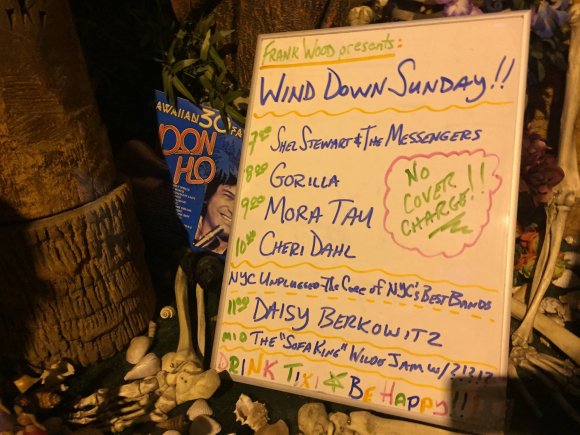 FRANK WOOD presents:
WIND DOWN SUNDAY!!
7:00 SHEL STEWART & THE MESSENGERS
8:00 GORILLA
9:00 MORA TAU
10:00 CHERI DAHL
NO
COVER
CHARGE!!
NYC UNPLUGGED-THE CORE OF NYC'S BEST BANDS
11:00 DAISY BERKOWITZ
MID THE "SOFA KING" WILDE JAM W/?!?!?
DRINK TIKI & BE HAPPY!!
HAWAIIAN 30 FA
DON
HO